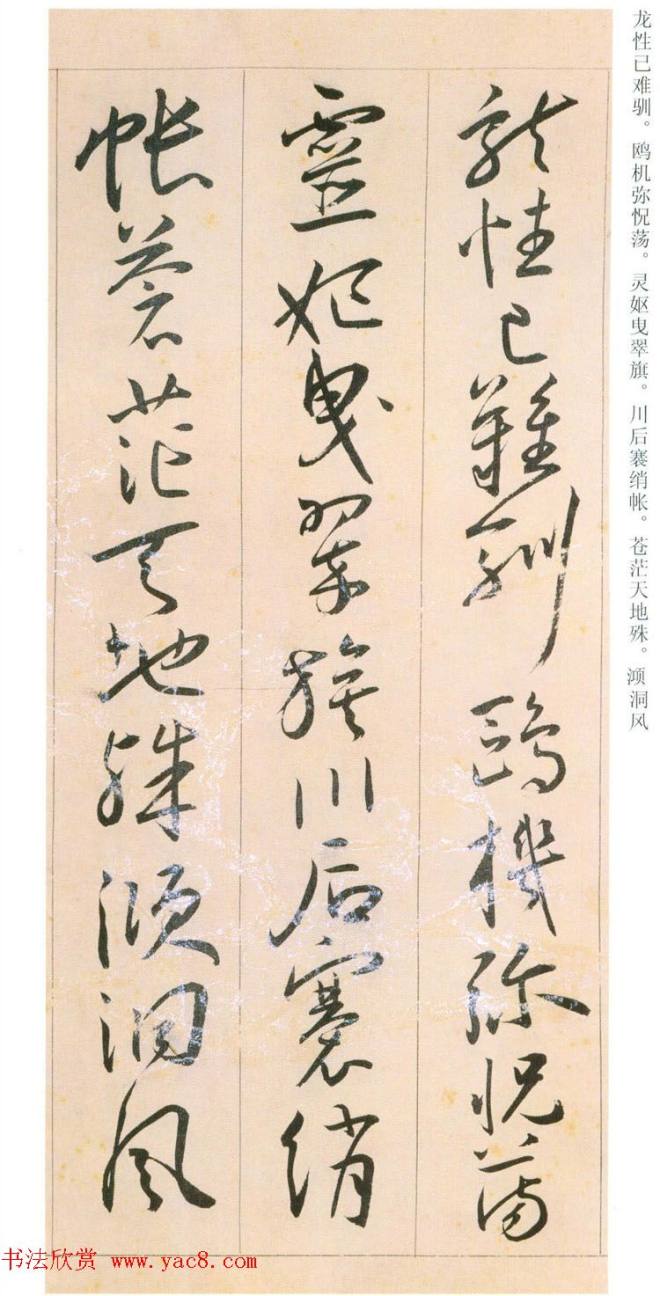 龙性已难驯。鸥机弥怳荡。灵妪曳翠旗。川后褰绡帐。苍茫天地殊。澒洞风
龍性已難馴鷗機彌怳蕩
靈妪曳翠旗川后褰綃
帐蒼茫天地殊澒洞風
书法欣赏 www.yac8.com